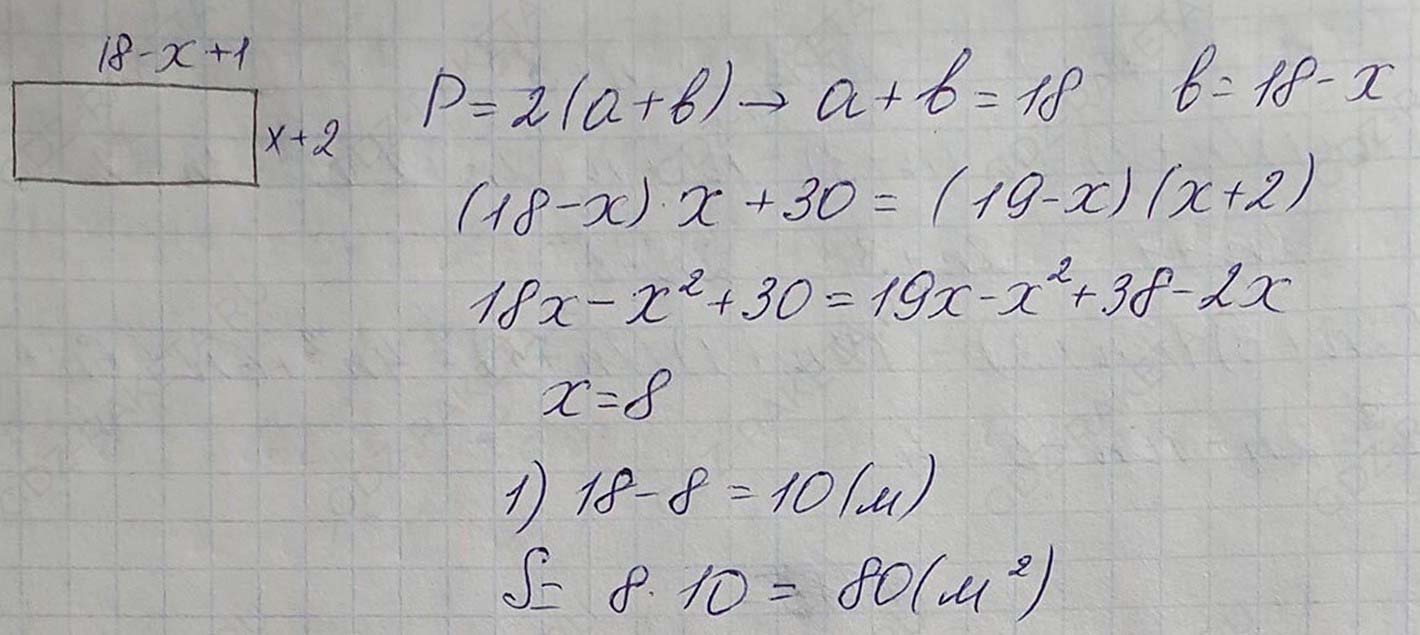 18-x+1
x+2
P=2(a+в)→ a+в=18 в=18-x
(18-x)·x+30=(19-x)(x+2)
18x-x²+30=19x-x²+38-2x
x=8
1) 18-8=10(м)
S= 8·10=80(м²)